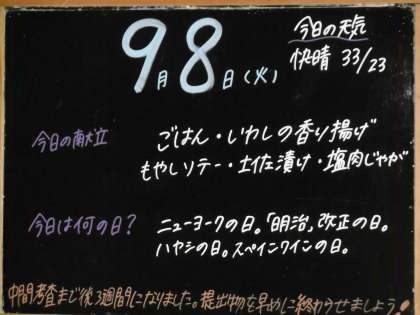 9月8日(火)
今日の天気
快晴 33/23
今日の献立
ごはん・いわしの香り揚げ
もやしソテー・土佐漬け・塩肉じゃが
今日は何の日?
ニューヨークの日。「明治」改正の日。
ハヤシの日。スペインワインの日。
中間考査まで後3週間になりました。提出物を早めに終わらせましょう!